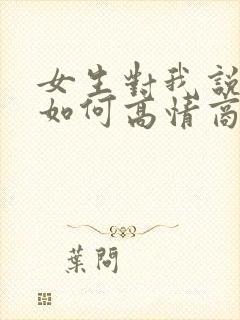 女生對我說
如何高情商
葉問